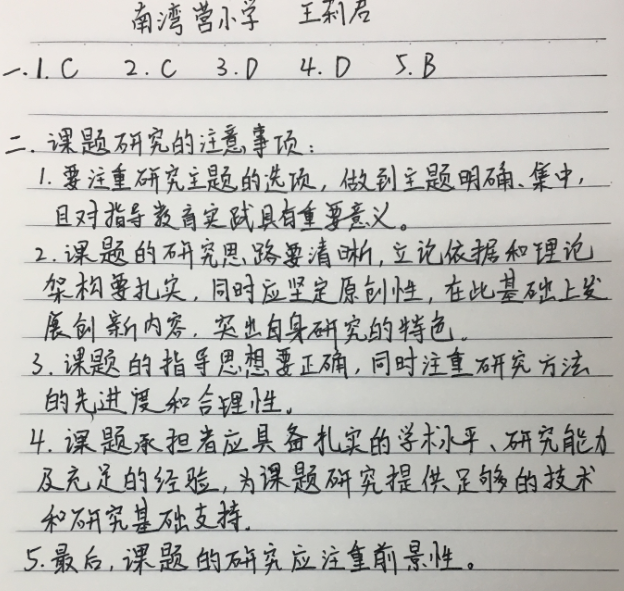 南湾营小学 王莉君
一.1.C 2.C 3.D 4.D 5.B
二.课题研究的注意事项：
1.要注重研究主题的选项，做到主题明确、集中，
且对指导教育实践具有重要意义。
2.课题的研究思路要清晰，立论依据和理论
架构要扎实，同时应坚定原创性，在此基础上发
展创新内容，突出自身研究的特色。
3.课题的指导思想要正确，同时注重研究方法
的先进度和合理性。
4.课题承担者应具备扎实的学术水平、研究能力
及充足的经验，为课题研究提供足够的技术
和研究基础支持.
5.最后，课题的研究应注重前景性。